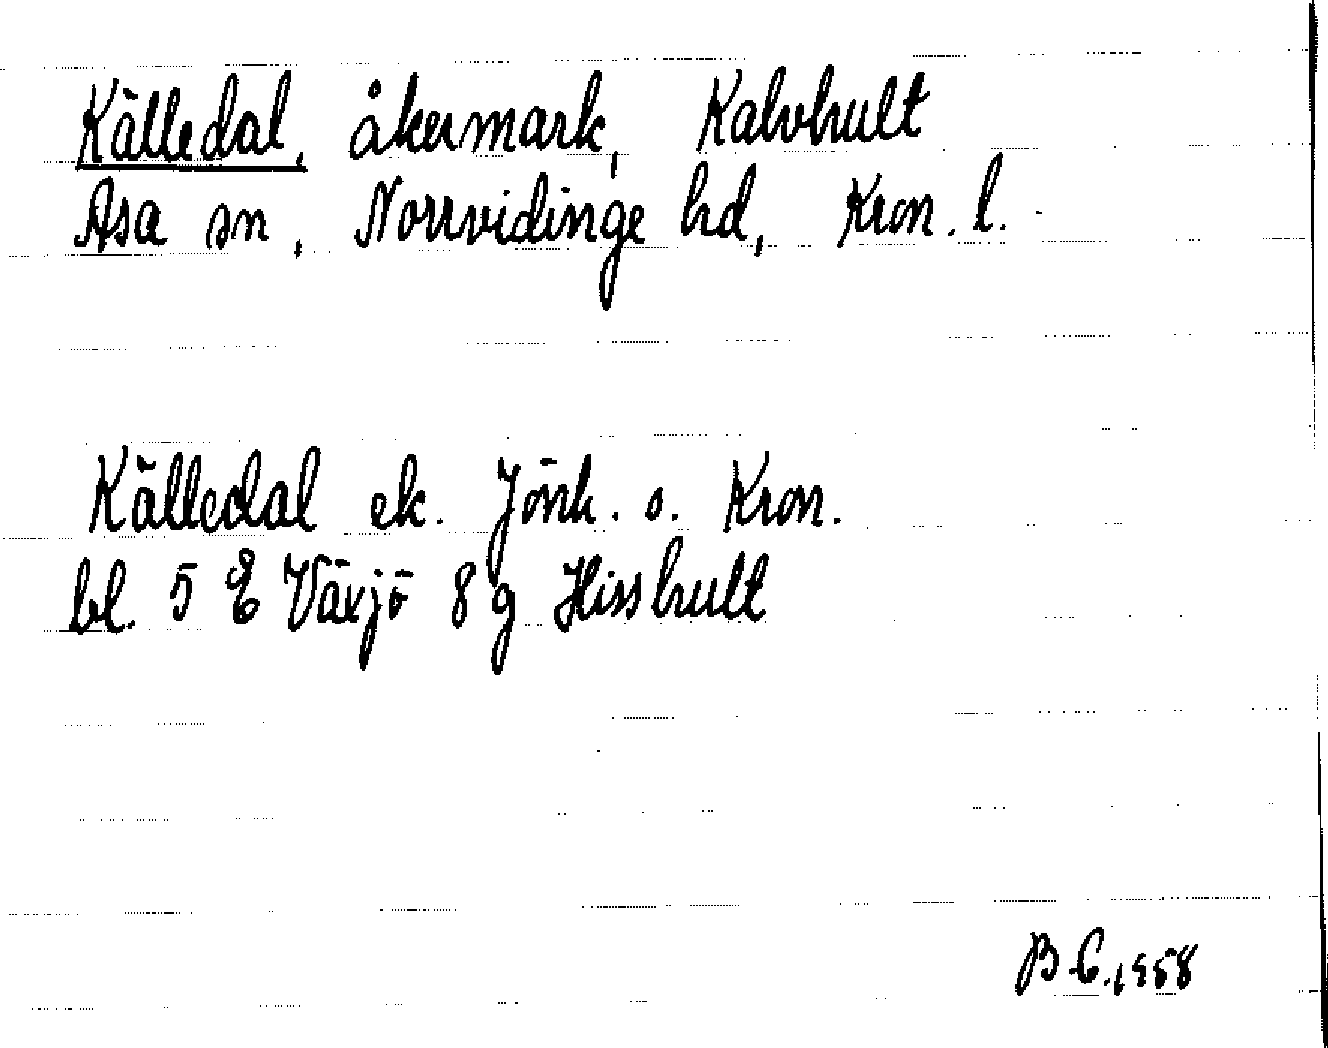 Källedal, åkermark, Kalvhult
Asa sn, Norrvidinge hd, Kron. l.
Källedal ek. Jönk. o. Kron.
bl. 5 E Växjö 8 g Hisshult
B.C. 1958